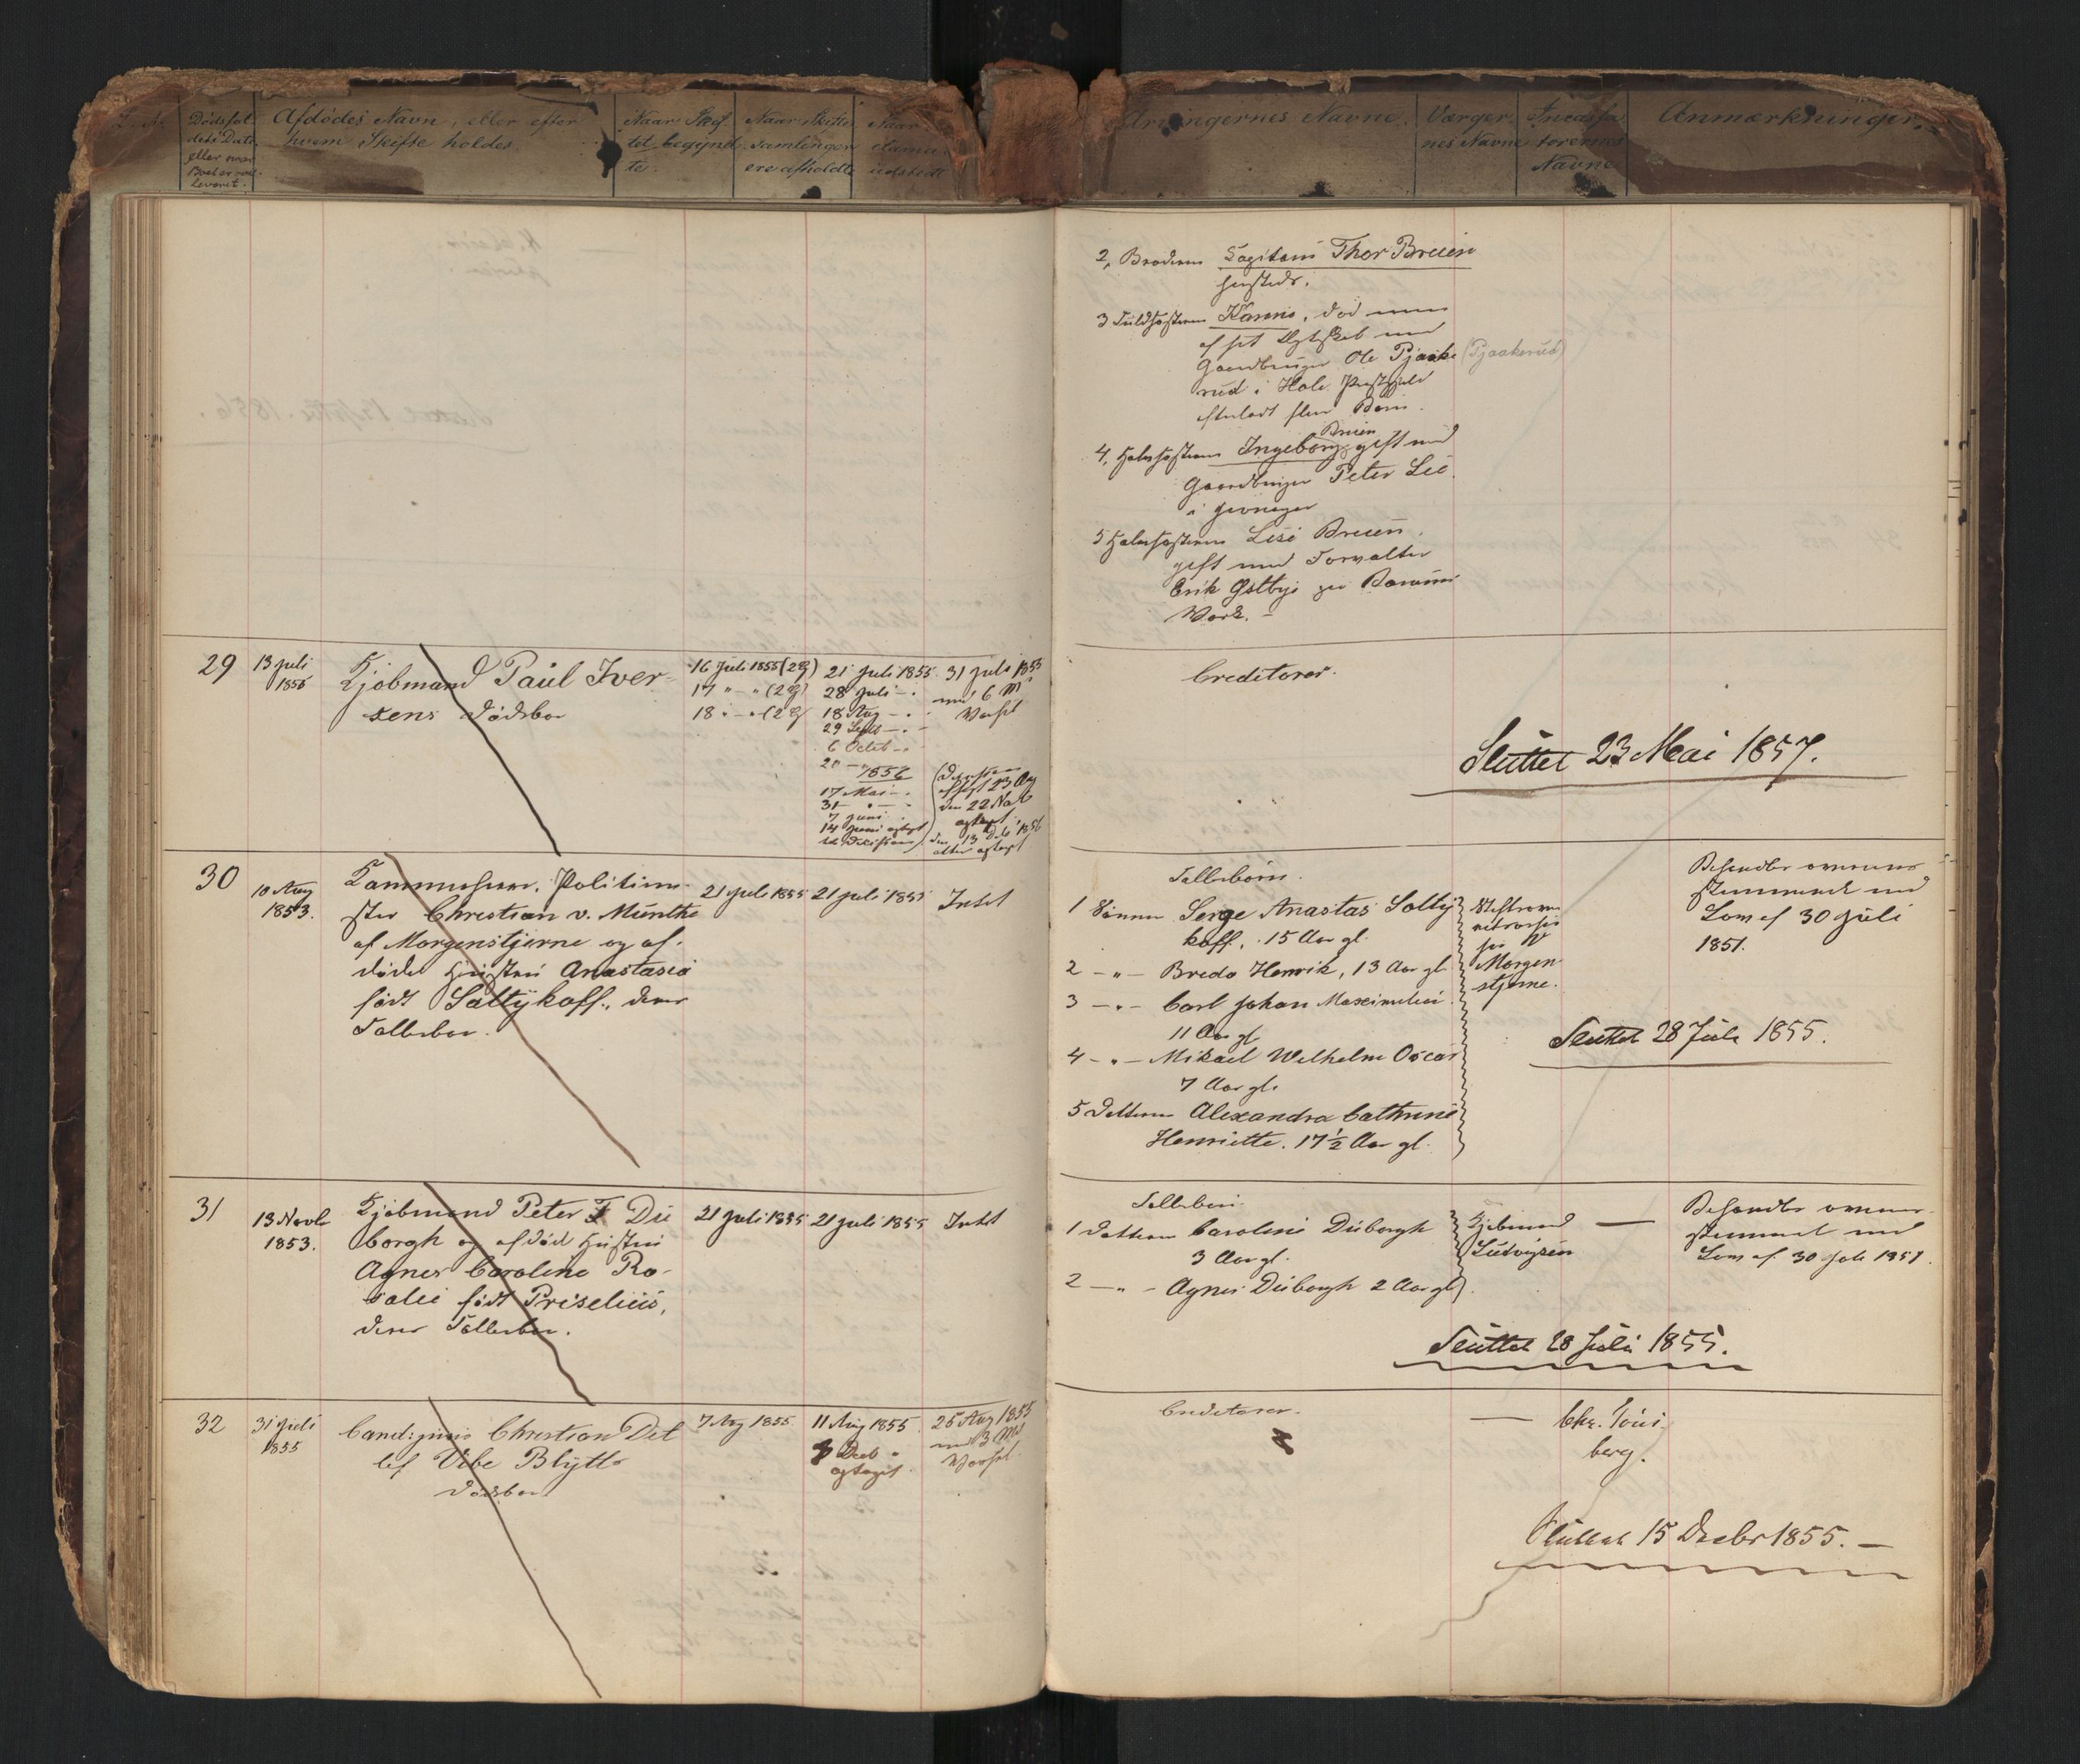 Dødsfal
dets Data
eller naar
Boet er over
leveret.
Afdødes Navn, eller efter
hvem Skifte holdes.
Naar Skif
tet begynd
te.
Naar Skifte
samlinger
ere afholdte
Naar
udstedt
Arvingernes Navne.
Værger
nes Navne
Incassa
torernes
Navne
Anmærkninger.
2, Broderen Capitain Thor Breien
3 Fuldsøsteren Karine, død men
af sit Ægteskab med
Gaardbruger Ole Pjaake (Pjaakerud)
rud i Hole Præstgjeld
efterladt flere Børn.
4, Halvsøsteren Ingeborg Breien gift med
Gaardbruger Peter Lie
i Jevnager
5 Halvsøsteren Lise Breien,
gift med Forvalter
Erik Østbye paa Bærums
Værk. -
29
13 Juli
1855
Kjøbmand Paul Iver-
sens Dødsbo
16 Juli 1855 (2 g)
17 " - " (2 g)
18 " - " (2 g)
21 Juli 1855
28 Juli - "
18 Aug - "
29 Sept - "
6 Octob - "
1856
17 Mai - "
31 - " -
7 Juni
14 Juni optagt
til Decision
31 Juli 1855
med 6 M
Varsel
den 22 Nov
optagt
den 13 Dec 1856
atter optagt
Creditorer.
Sluttet 23 Mai 1857.
30
10 Aug
1853.
Kammerherre, Politime-
ster Christian v. Munthe
af Morgenstjerne og af-
døde Hustru Anastasia
født Saltÿkoff, deres
Fællesbo.
21 Juli 1855
21 Juli 1855
Intet
Fællesbørn.
1 Sønnen Serge Anastas Solty
koff, 15 Aar gl.
2 - " - Breda Henrik, 13 Aar gl
3 - " - Carl Johan Maximilian
11 Aar gl
4 - " - Mikael Wilhelm Oscar
7 Aar gl.
5 Datteren Alexandra Cathrine
Henriette. 17½ Aar gl.
Morgen
stjerne.
Behandles overeens
stemmende med
Lov af 30 Juli
1851.
Sluttet 28 Juli 1855.
31
13 Novb
1853.
Kjøbmand Peter F Du
borgh og afdød Hustru
Agnes Caroline Ro-
salie født Priselius,
deres Fællesbo.
21 Juli 1855
21 Juli 1855
Intet
Fællesbørn.
1 Datteren Caroline Duborgh
3 Aar gl.
2 - " - Agnes Duborgh 2 Aar gl
Kjøbmand
Ludvigsen
Behandles overeens-
stemmende med
Lov af 30 Juli 1851.
Sluttet 28 Juli 1855.
32
31 Juli
1855
Cand: juris Christian Det
lef Vibe Blytts
Dødsbo
7 Aug 1855
11 Aug 1855
8 Decb "
optaget
25 Aug 1855
med 3 Mds
Varsel.
Creditorer.
Chr. Tøns-
berg.
Sluttet 15 Decbr 1855. -